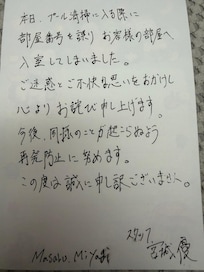 本日、プール清掃に入る際に
部屋番号を誤り お客様の部屋へ
入室してしまいました。
ご迷惑とご不快な思いをおかけし
心よりお詫び申し上げます。
今後、同様のことが起こらぬよう
再発防止に努めます。
この度は誠に申し訳ございません。
スタッフ
Masaru. Miyagi 宮城 優